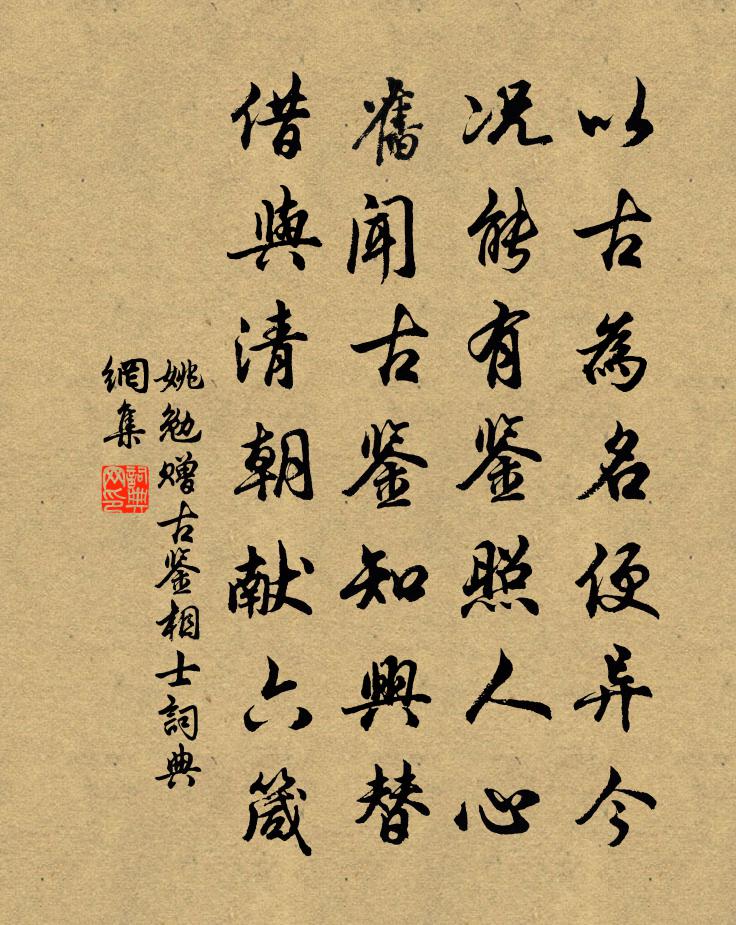 以古為名便异今
況能有鉴照人心
舊聞古鉴知興替
借與清朝献六箴
姚勉赠古鉴相士詞典
網集
詞典
网印